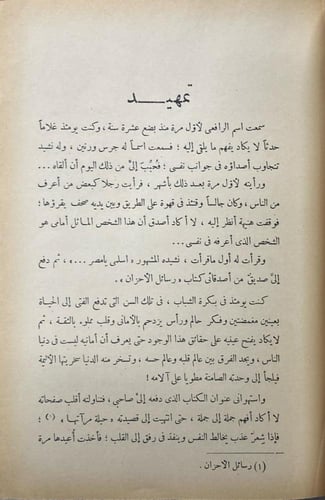 تمهيد
سمعت اسم الرافعى لأول مرة منذ بضع عشرة سنة، وكنت يومئذ غلاماً
حدثاً لا يكاد يفهم ما يلقى إليه؛ فسمعت اسماً له جرس ورنين، وله نشيد
تتجاوب أصداؤه فى جوانب نفسى؛ فحُبِّبَ إلىَّ من ذلك اليوم أن ألقاه...
ورأيته لأول مرة بعد ذلك بأشهر، فرأيت رجلا كبعض من أعرف
من الناس، وكان جالساً وقتئذ فى قهوة على الطريق وبين يديه صحف يقرؤها؛
فوقفت هنيهة أنظر إليه، لا أكاد أصدق أن هذا الشخص الماثل أمامى هو
الشخص الذى أعرفه فى نفسى...
وقرأت له أول ما قرأت، نشيده المشهور «اسلمى يا مصر...»، ثم دفع
إلىَّ صديق من أصدقائى كتاب «رسائل الأحزان».
كنت يومئذ فى بكرة الشباب، فى تلك السن التى تدفع الفتى إلى الحياة
بعينين مغمضتين وفكر حالم ورأس يزدحم بالأمانى وقلب مملوء بالثقة، ثم
لا يكاد يفتح عينيه على حقائق هذا الوجود حتى يعرف أن أمانيه ليست فى دنيا
الناس، ويجد الفرق بين عالم قلبه وعالم حسه، وتسخر منه الدنيا سخريتها الأليمة
فيلجأ إلى وحدته الصامتة مطويا على آلامه!
واستهوانى عنوان الكتاب الذى دفعه إلىَّ صاحبى، فتناولته أقلب صفحاته
لا أكاد أفهم جملة إلى جملة، حتى انتهيت إلى قصيدته «حيلة مرآتها» (١)؛
فإذا شِعرٌ عذب يخالط النفس وينفذ فى رفق إلى القلب؛ فأخذت أُعيدها مرة
(١) رسائل الأحزان.